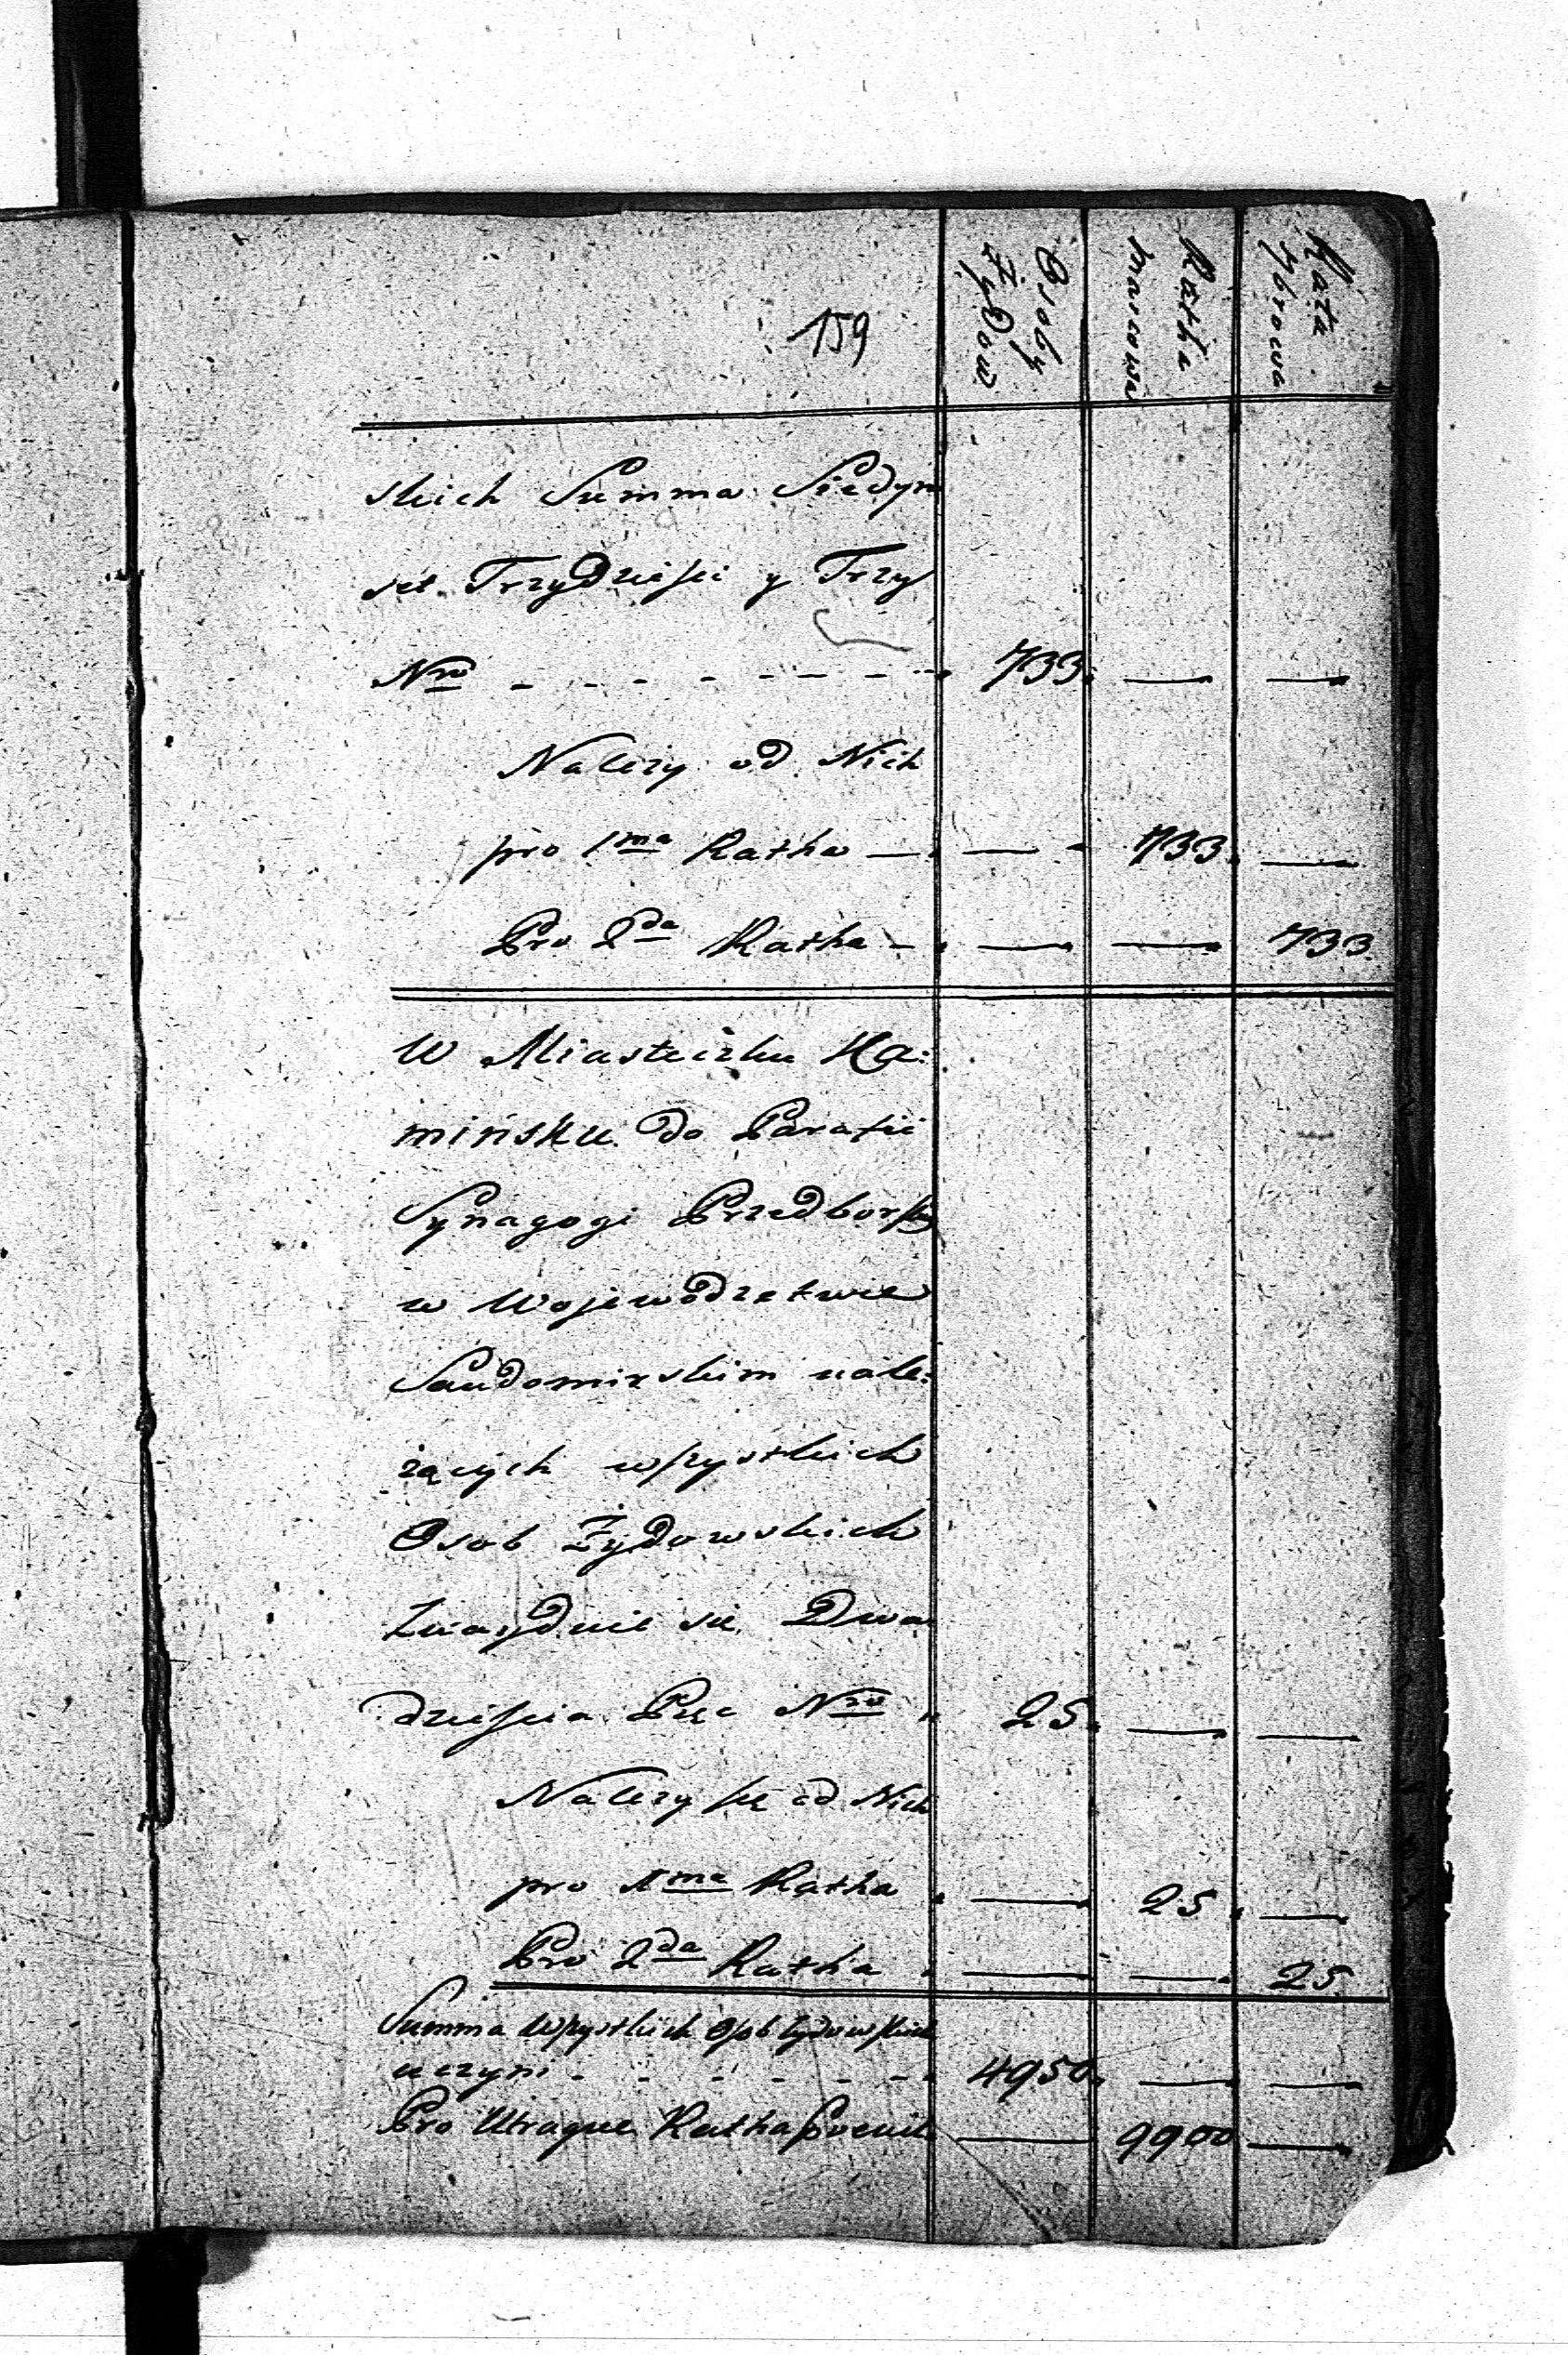 159
Osoby Żydow
Ratha marcowa
Rata 7browa
skich Summa Siedym
set Trzydziesci y Trzy
Nro - - - - - - - 733. — —
Nalezy od Nich
pro 1ma Ratha — — 733. —
Pro 2da Ratha — — — 733.
W Miasteczku Ka:
mińsku do Parafii
Synagogi Przedborsky
w Wojewodztwie
Sandomirskim nale:
żących wszystkich
Osob Żydowskich
Znayduie sie Dwa
dziescia Pięc Nro 25. — —
Nalezy się od Nich
pro 1ma Ratha — 25 —
Pro 2da Ratha — — 25
Summa wszystkich Osob Żydowskich
uczyni - - - - - - 4950. — —
Pro Utraque Ratha — 9900 —